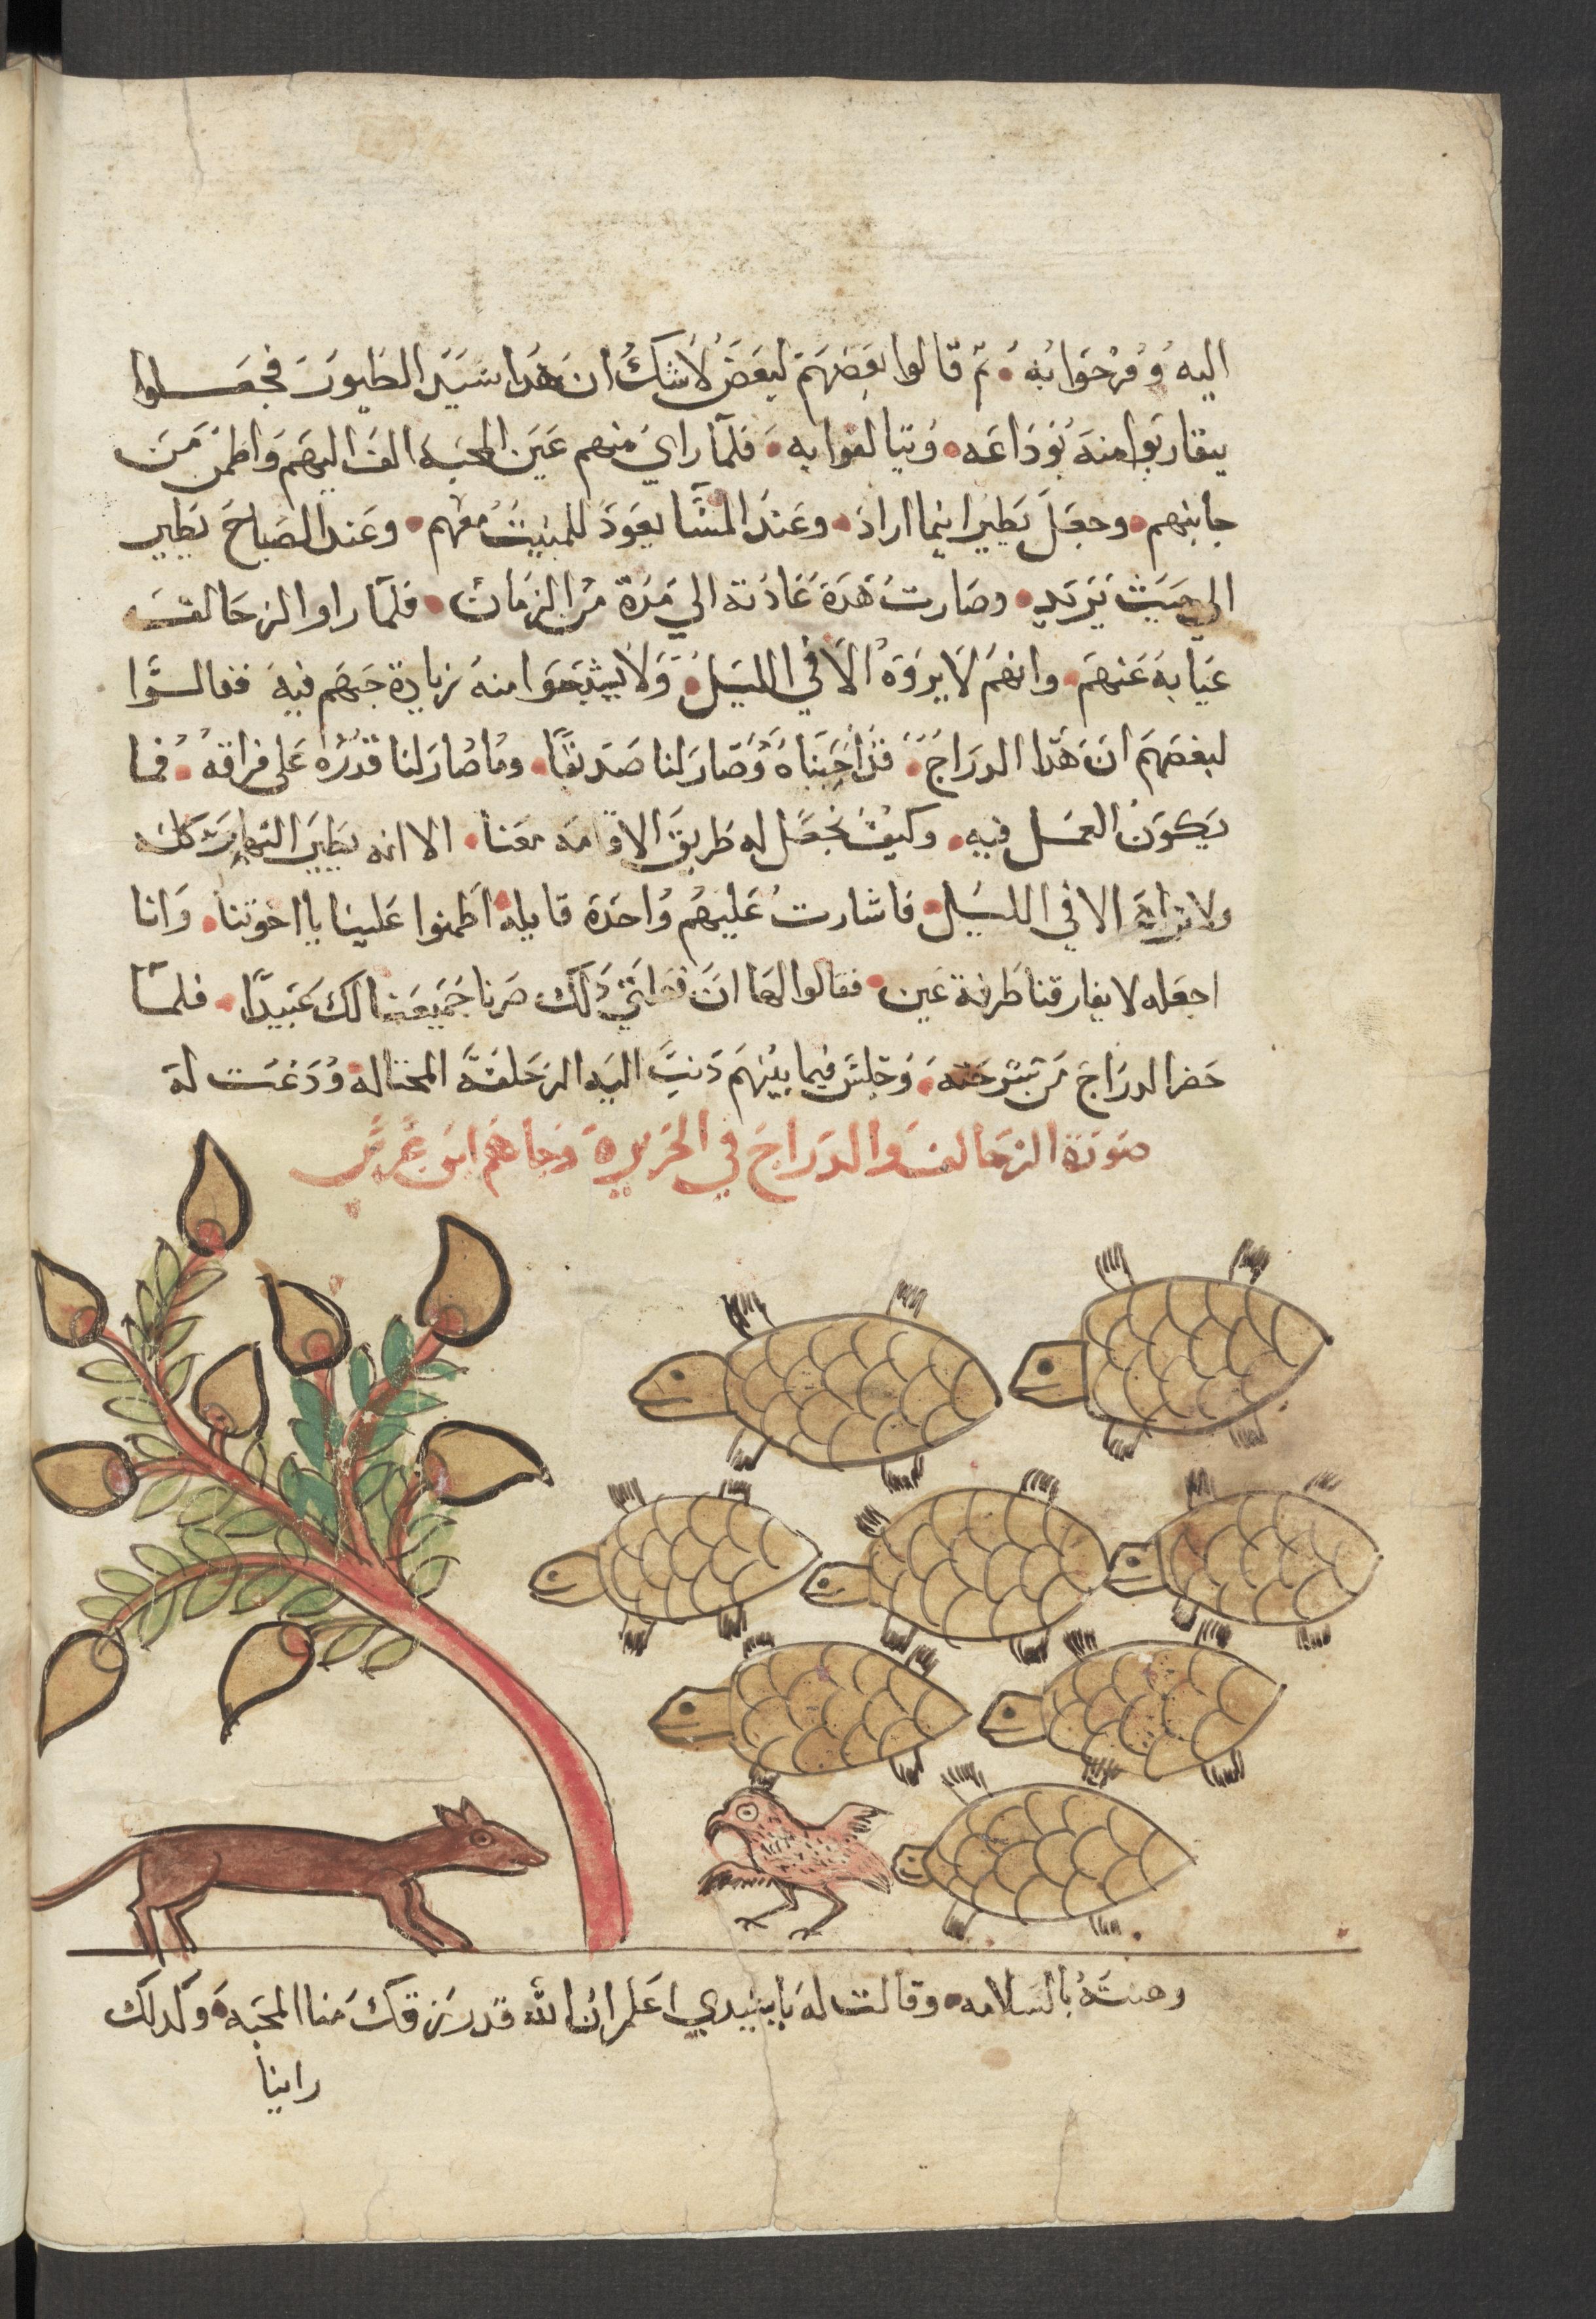 اليه وفرحوا به ثم قالوا بعضهم لبعض لاشك ان هدا سيد الطيور فجعلوا
يتقاربوا منه بوداعه ويتالفوا به فلما راي منهم عين المحبه الف اليهم واطمن من
جانبهم وجعل يطير اينما اراد وعند المسا يعود للمبيت معهم وعند الصباح يطير
الي حيث يريد وصارت هده عادته الي مدة من الزمان فلما راوا الزحالف
غيابه عنهم وانهم لا يروه الا في الليل ولا يشبعوا منه زيادة حبهم فيه فقالوا
لبعضهم ان هدا الدراج قد احبناه وصار لنا صديقا وما صار لنا قدره علي فراقه فما
يكون العمل فيه وكيف نجعل له طريق الاقامه معنا الا انه يطير النهار كله
ولا نراه الا في الليل فاشارت عليهم واحدة قايله اطمنوا علينا يا اخوتنا وانا
اجعله لا يفارقنا طرفة عين فقالوا لها ان فعلتي دلك صرنا جميعنا لك عبيدا فلما
حضر الدراج من تسرحته وجلس فيما بينهم دنت اليه الزحلفه المحتاله ودعت له
صورة الزحالف والدراج في الجزيرة وجاهم ابن عرس
وهنته بالسلامه وقالت له يا سيدي اعلم ان الله قد رزقك منا المحبه وكدلك
راينا